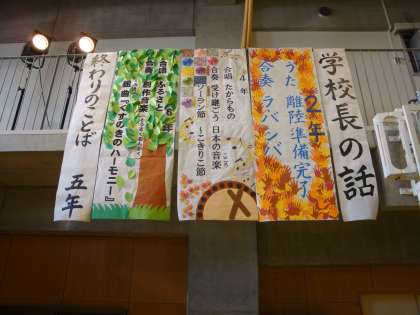 学校長の話
2年
うた 離陸準備完了
合奏 ラバンバ
4年
合唱 たからもの
合奏 受け継ごう 日本の音楽
ソーラン節 ~こきりこ節
6年
合唱 ふるさと
合奏 創作音楽
組曲『くすのきのハーモニー』
終わりのことば 五年